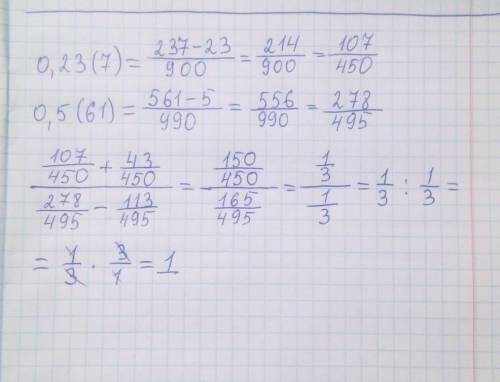 0,23(7) = (237-23)/900 = 214/900 = 107/450
0,5(61) = (561-5)/990 = 556/990 = 278/495
(107/450 + 43/450)/(278/495 - 113/495) = (150/450)/(165/495) = (1/3)/(1/3) = 1/3 : 1/3 =
= 1/3 · 3/1 = 1